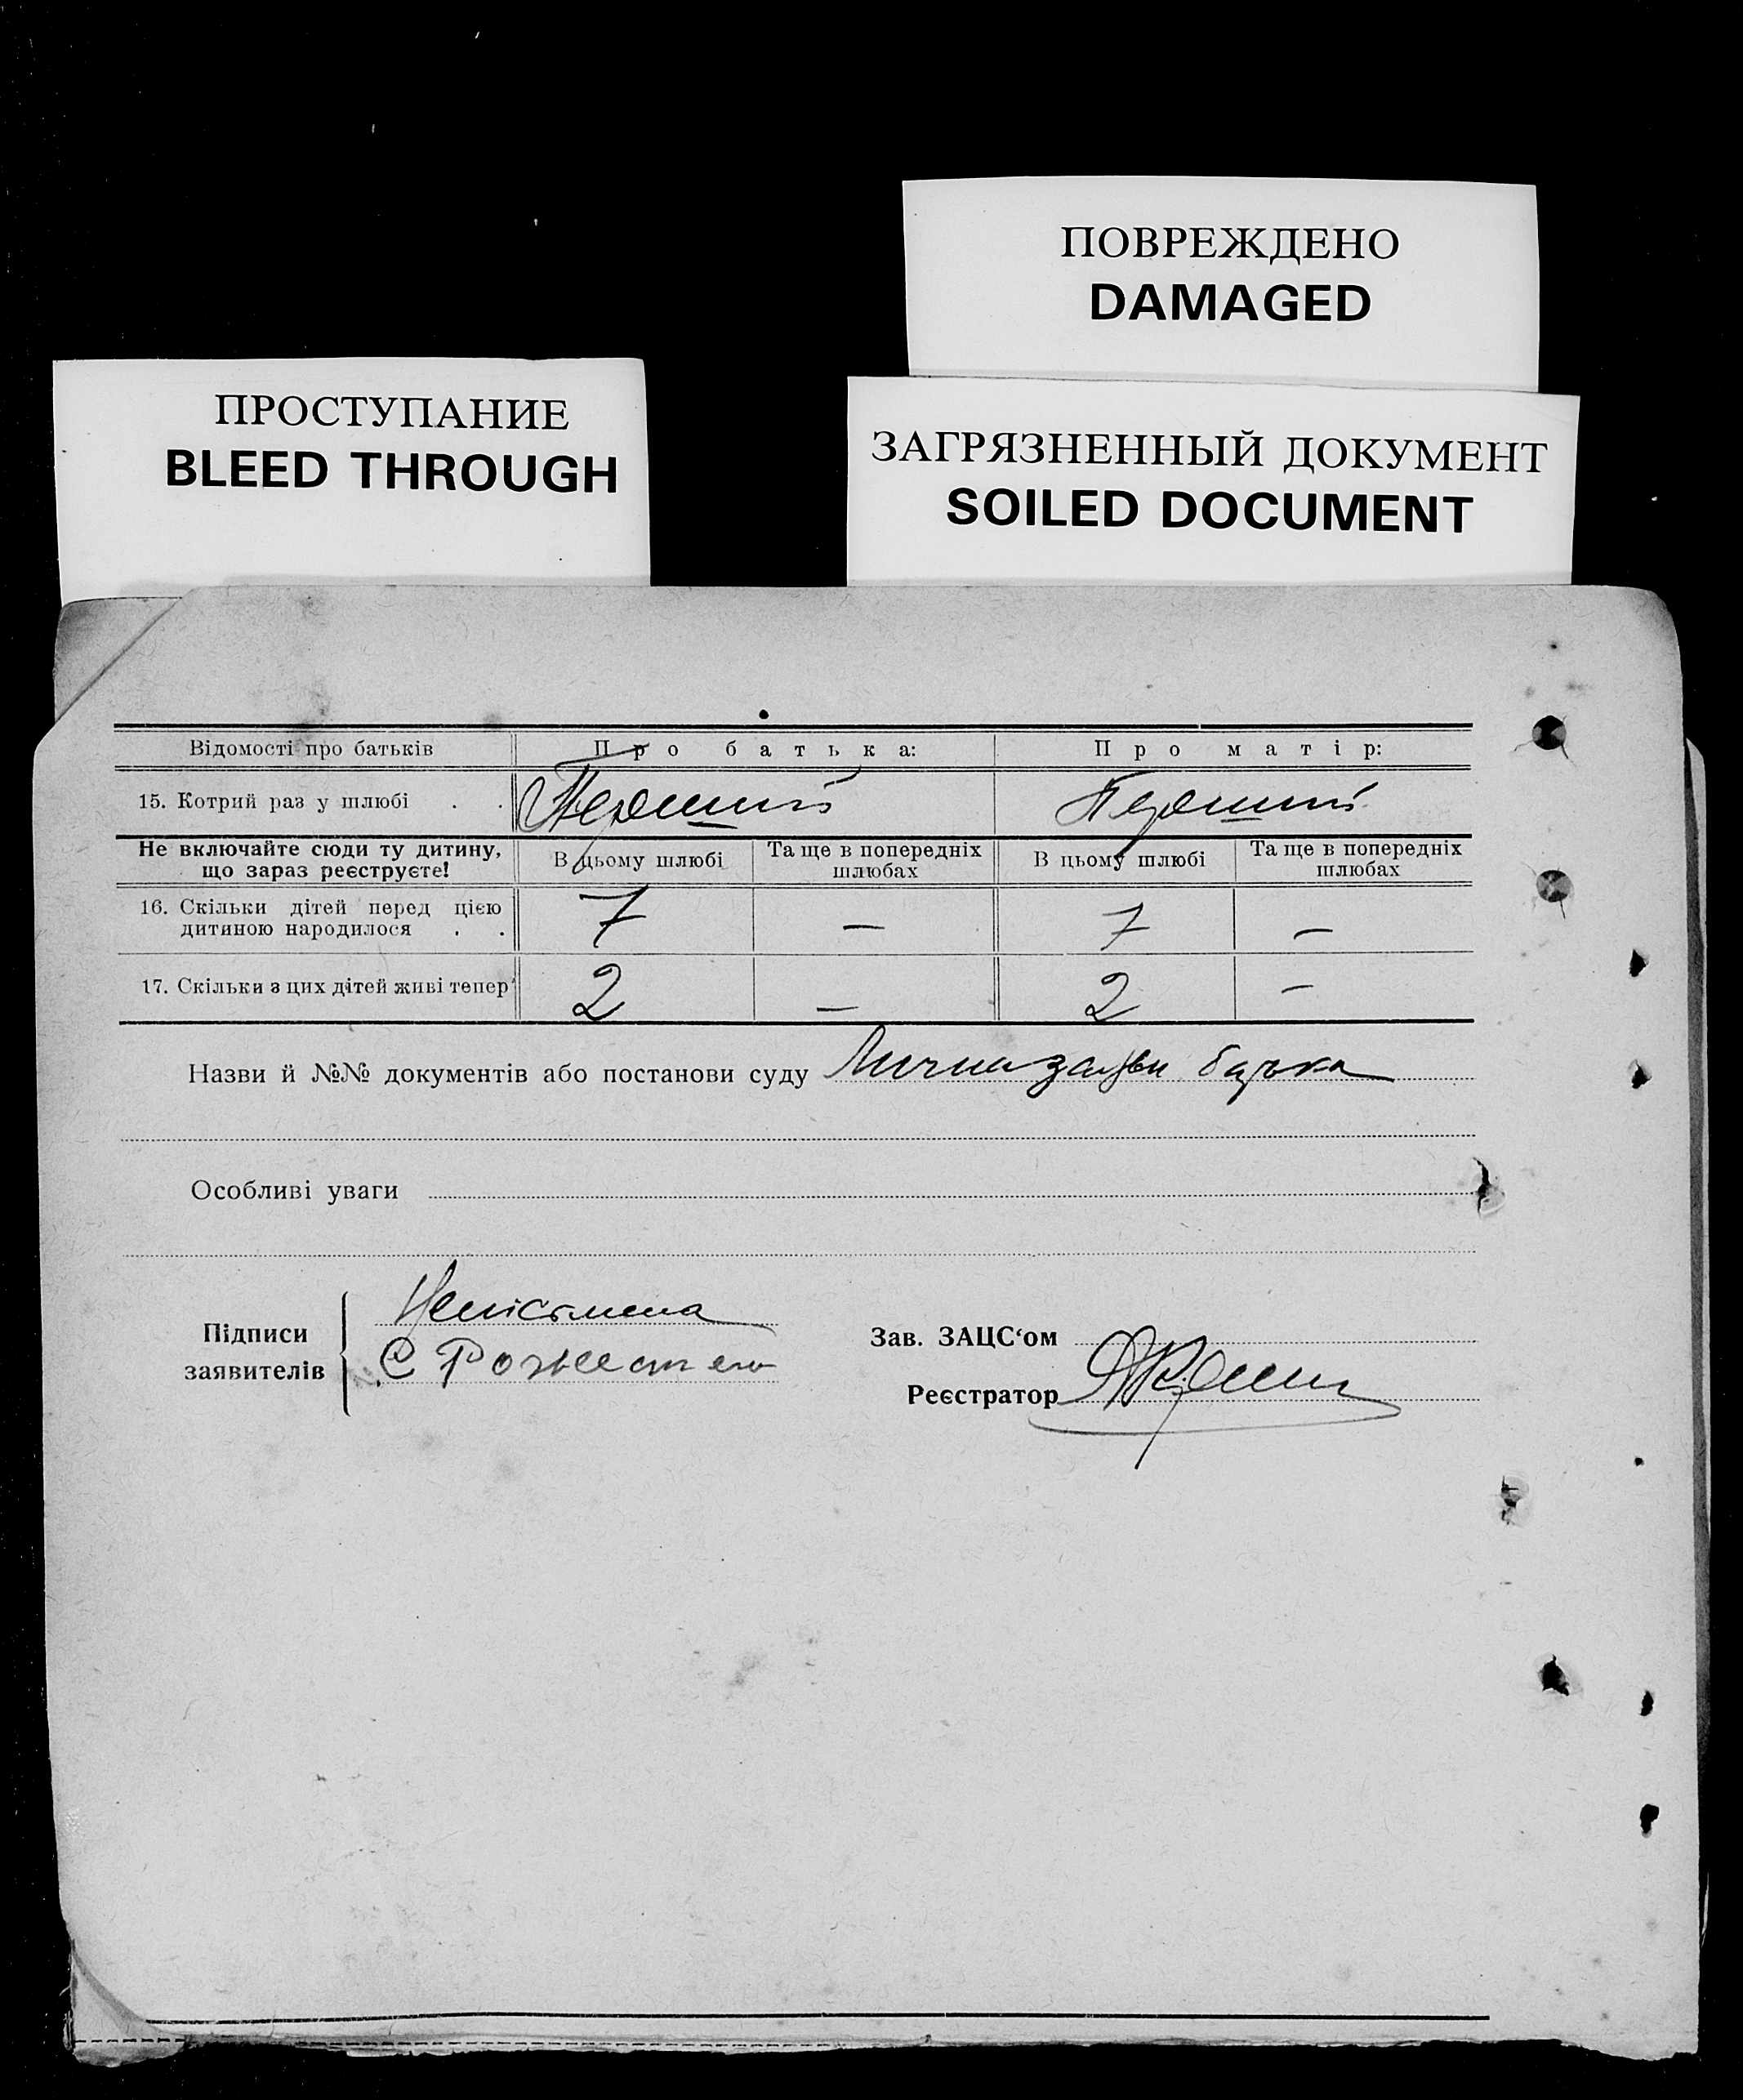 ПОВРЕЖДЕНО
DAMAGED
ПРОСТУПАНИЕ
BLEED THROUGH
ЗАГРЯЗНЕННЫЙ ДОКУМЕНТ
SOILED DOCUMENT
Відомості про батьків Про батька: Про матір:
15. Котрий раз у шлюбі . . Перший Перший
Не включайте сюди ту дитину, що зараз реєструєте! В цьому шлюбі Та ще в попередніх шлюбах В цьому шлюбі Та ще в попередніх шлюбах
16. Скільки дітей перед цією дитиною народилося . . 7 — 7 —
17. Скільки з цих дітей живі тепер 2 — 2 —
Назви й №№ документів або постанови суду батька
Особливі уваги
Підписи заявителів
Неписьмена
С
Зав. ЗАЦС‘ом
Реєстратор